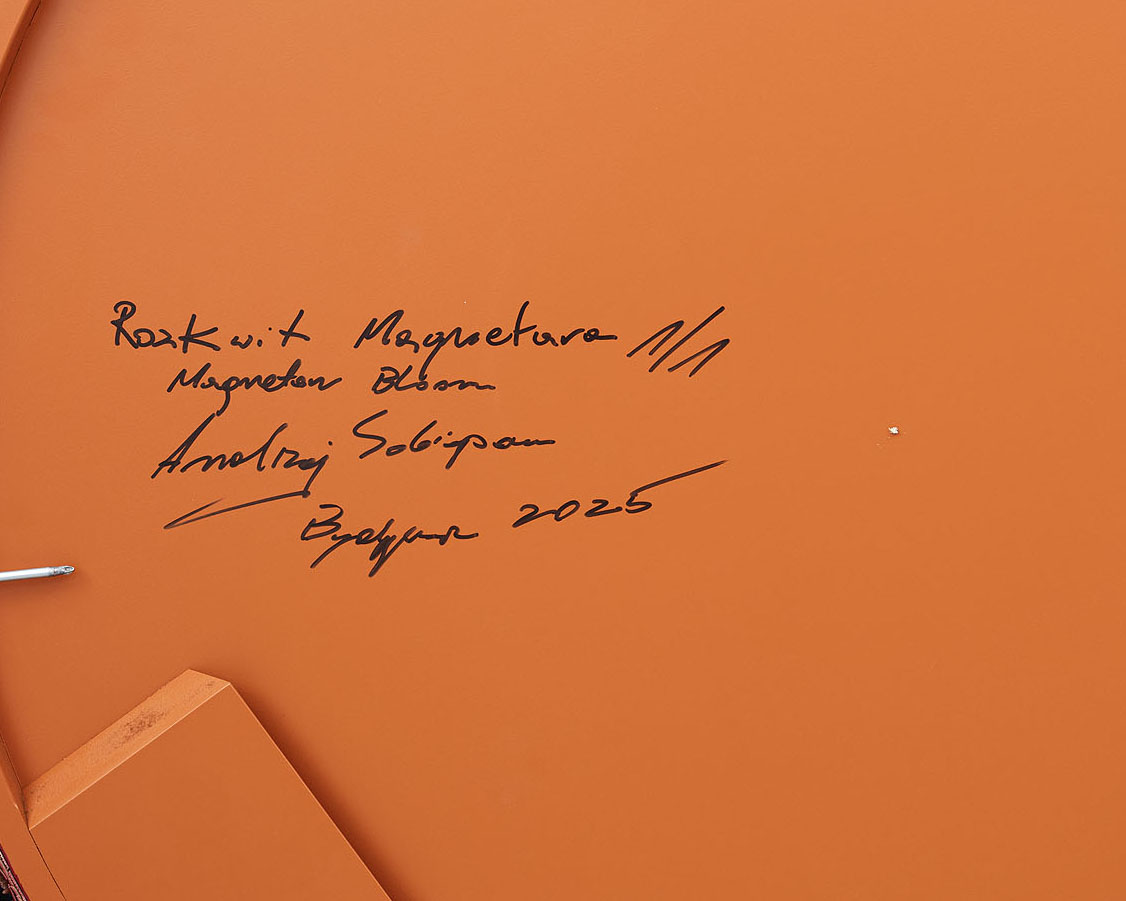 Rozkwit Magnetara 1/1
Magnetar Blossom
Andrzej Sobiepan
Bydgoszcz 2025